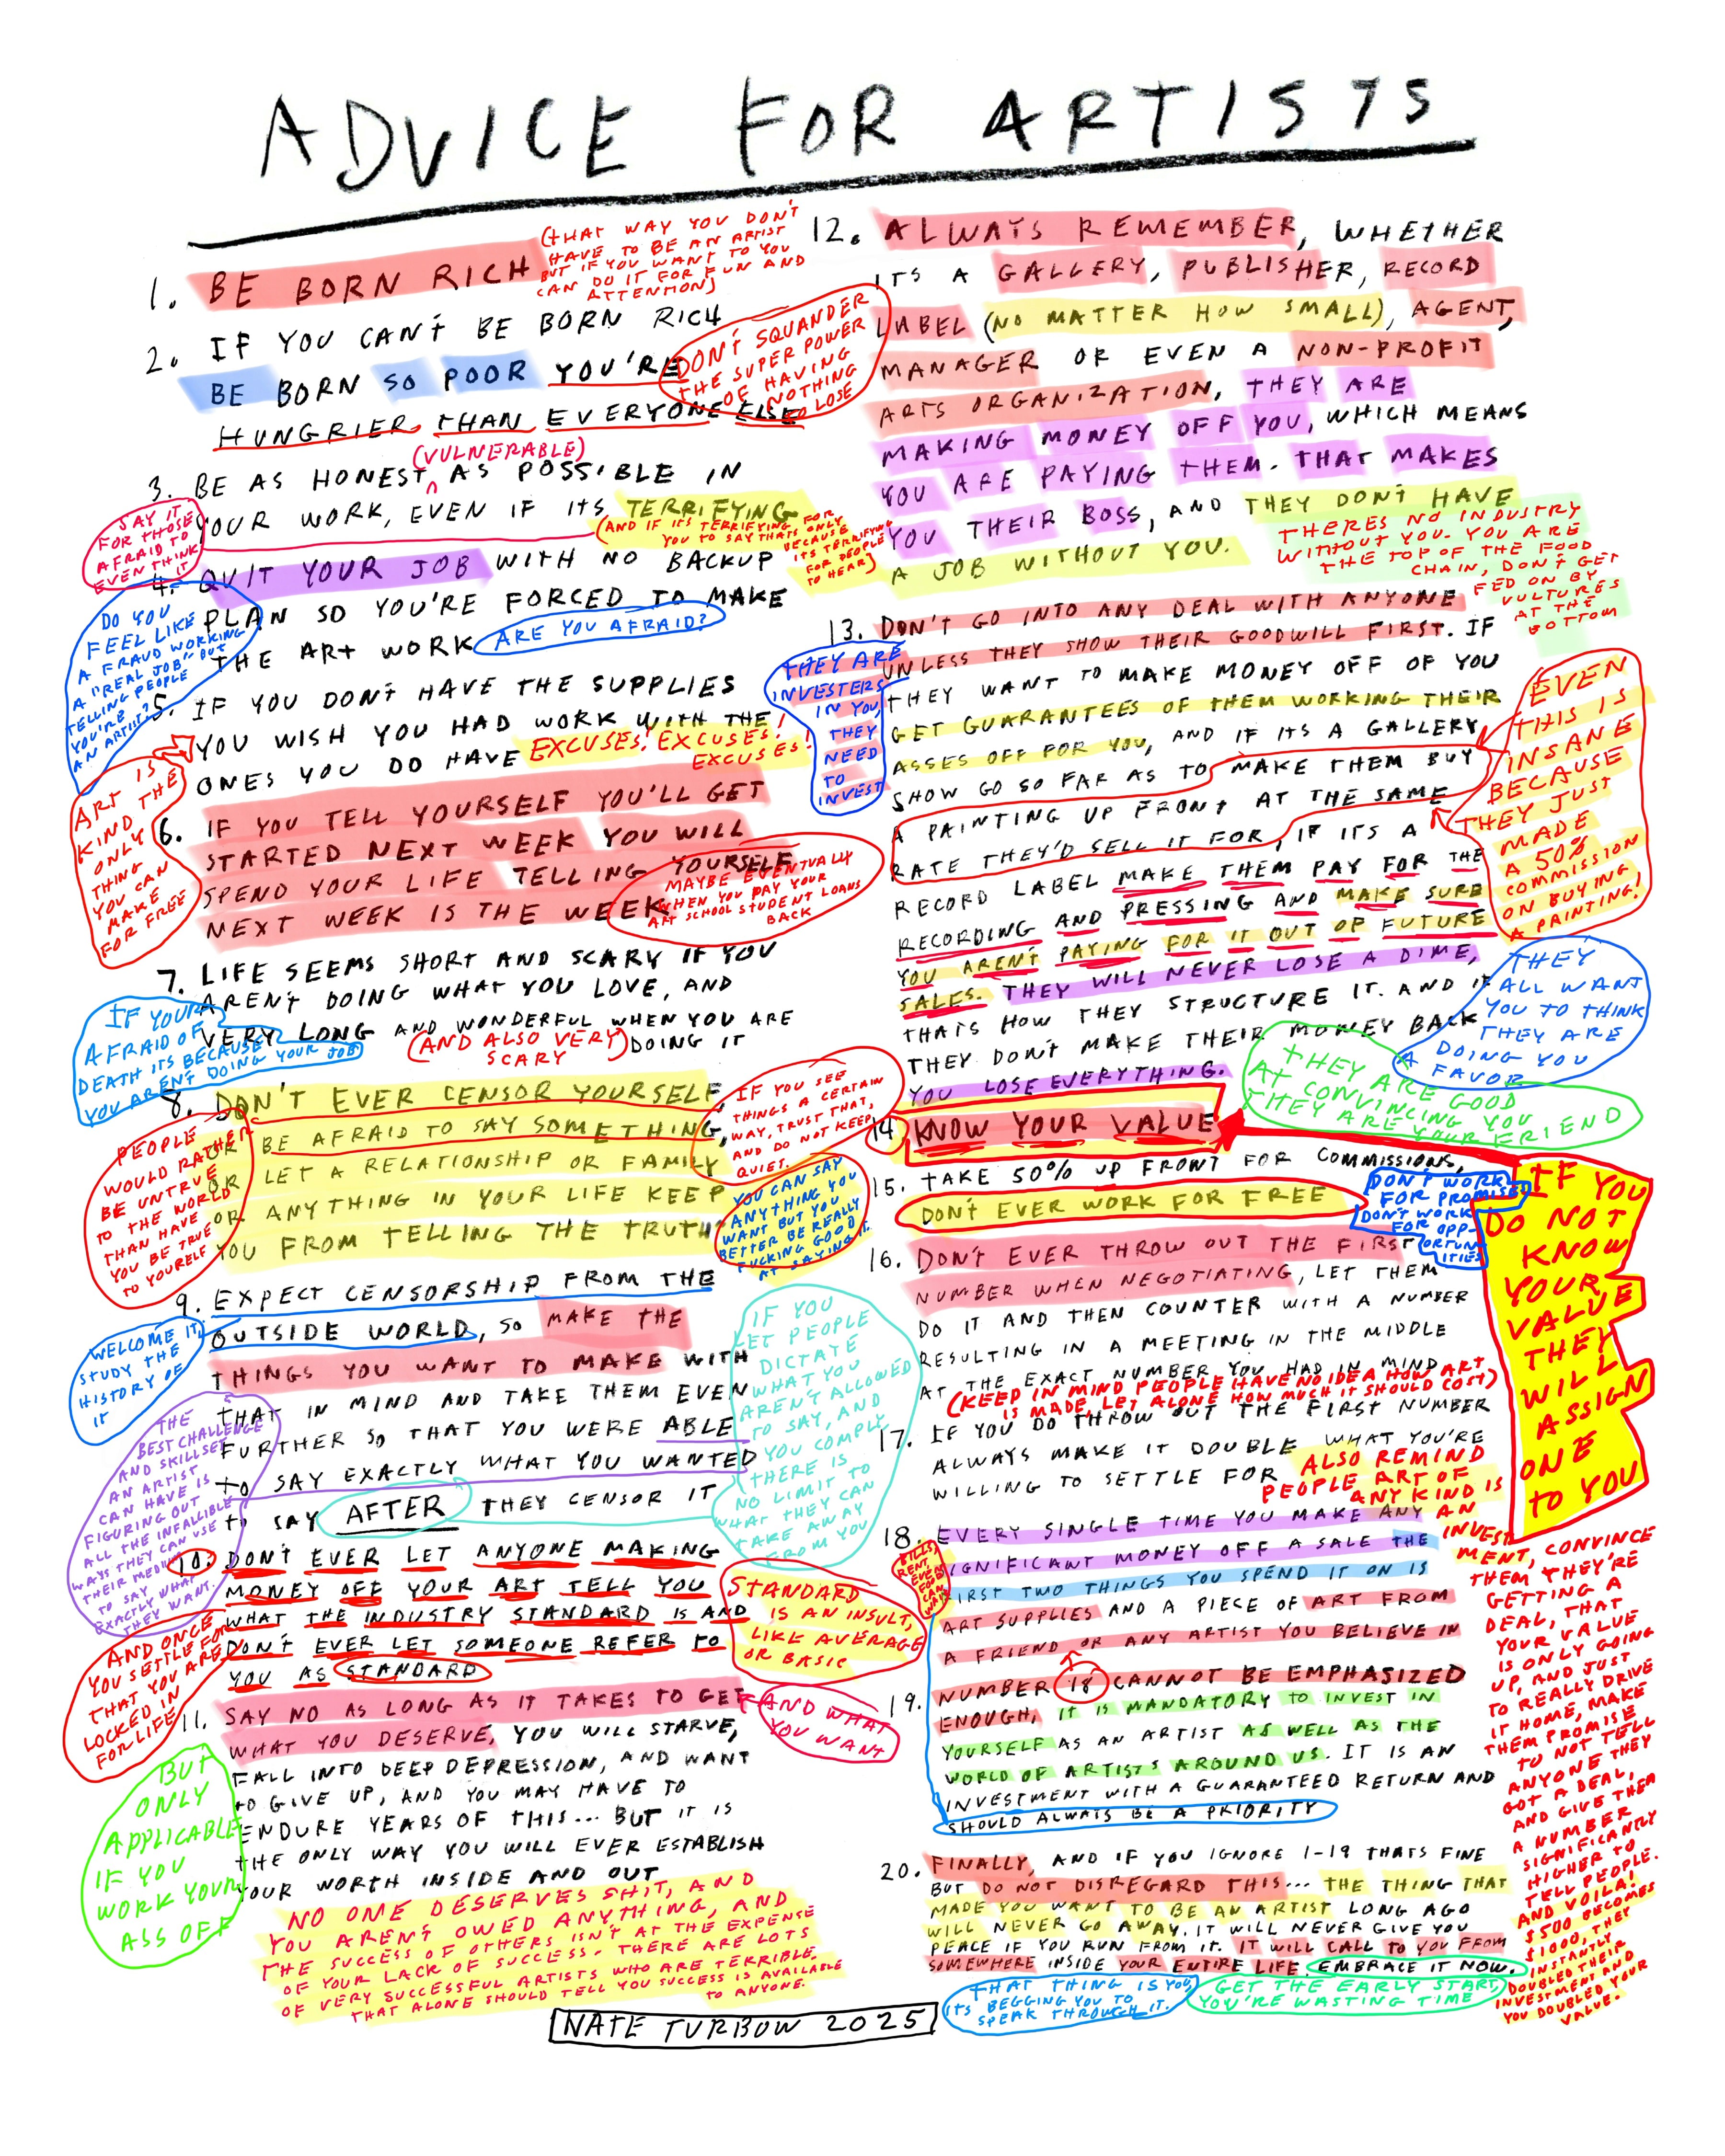 ADVICE FOR ARTISTS
1. BE BORN RICH
(THAT WAY YOU DON'T
HAVE TO BE AN ARTIST
BUT IF YOU WANT TO YOU
CAN DO IT FOR FUN AND
ATTENTION)
2. IF YOU CAN'T BE BORN RICH
BE BORN SO POOR YOU'RE
HUNGRIER THAN EVERYONE ELSE
DON'T SQUANDER
THE SUPER POWER
OF HAVING
NOTHING
TO LOSE
(VULNERABLE)
3. BE AS HONEST AS POSSIBLE IN
YOUR WORK, EVEN IF ITS TERRIFYING
(AND IF IT'S TERRIFYING FOR
YOU TO SAY THATS ONLY
BECAUSE
ITS TERRIFYING
FOR PEOPLE
TO HEAR)
SAY IT
FOR THOSE
AFRAID TO
EVEN THINK
IT
4. QUIT YOUR JOB WITH NO BACKUP
PLAN SO YOU'RE FORCED TO MAKE
THE ART WORK ARE YOU AFRAID?
DO YOU
FEEL LIKE
A FRAUD WORKING
A "REAL JOB" BUT
TELLING PEOPLE
YOU'RE
AN ARTIST?
5. IF YOU DON'T HAVE THE SUPPLIES
YOU WISH YOU HAD WORK WITH THE
ONES YOU DO HAVE EXCUSES! EXCUSES!
EXCUSES!
ART IS
KIND THE
ONLY
THING
YOU CAN
MAKE
FOR FREE
6. IF YOU TELL YOURSELF YOU'LL GET
STARTED NEXT WEEK YOU WILL
SPEND YOUR LIFE TELLING YOURSELF
NEXT WEEK IS THE WEEK
MAYBE EVENTUALLY
WHEN YOU PAY YOUR
ART SCHOOL STUDENT LOANS
BACK
7. LIFE SEEMS SHORT AND SCARY IF YOU
AREN'T DOING WHAT YOU LOVE, AND
VERY LONG AND WONDERFUL WHEN YOU ARE
(AND ALSO VERY
SCARY) DOING IT
IF YOUR
AFRAID OF
DEATH ITS BECAUSE
YOU ARENT DOING YOUR JOB
8. DON'T EVER CENSOR YOURSELF,
OR BE AFRAID TO SAY SOMETHING,
OR LET A RELATIONSHIP OR FAMILY
OR ANYTHING IN YOUR LIFE KEEP
YOU FROM TELLING THE TRUTH
IF YOU SEE
THINGS A CERTAIN
WAY, TRUST THAT,
AND DO NOT KEEP
QUIET.
YOU CAN SAY
ANYTHING YOU
WANT BUT YOU
BETTER BE REALLY
FUCKING GOOD
AT SAYING IT.
PEOPLE
WOULD RATHER
BE UNTRUE
TO THE WORLD
THAN HAVE
YOU BE TRUE
TO YOURSELF
9. EXPECT CENSORSHIP FROM THE
OUTSIDE WORLD, SO MAKE THE
THINGS YOU WANT TO MAKE WITH
THAT IN MIND AND TAKE THEM EVEN
FURTHER SO THAT YOU WERE ABLE
TO SAY EXACTLY WHAT YOU WANTED
TO SAY AFTER THEY CENSOR IT
WELCOME IT,
STUDY THE
HISTORY OF
IT
IF YOU
LET PEOPLE
DICTATE
WHAT YOU
AREN'T ALLOWED
TO SAY, AND
YOU COMPLY
THERE IS
NO LIMIT TO
WHAT THEY CAN
TAKE AWAY
FROM YOU
THE
BEST CHALLENGE
AND SKILLSET
AN ARTIST
CAN HAVE IS
FIGURING OUT
ALL THE INFALLIBLE
WAYS THEY CAN USE
THEIR MEDIUM
TO SAY
EXACTLY WHAT
THEY WANT.
10. DON'T EVER LET ANYONE MAKING
MONEY OFF YOUR ART TELL YOU
WHAT THE INDUSTRY STANDARD IS AND
DON'T EVER LET SOMEONE REFER TO
YOU AS STANDARD
STANDARD
IS AN INSULT,
LIKE AVERAGE
OR BASIC
AND ONCE
YOU SETTLE FOR
THAT YOU ARE
LOCKED IN
FOR LIFE
11. SAY NO AS LONG AS IT TAKES TO GET
WHAT YOU DESERVE, YOU WILL STARVE,
FALL INTO DEEP DEPRESSION, AND WANT
TO GIVE UP, AND YOU MAY HAVE TO
ENDURE YEARS OF THIS... BUT IT IS
THE ONLY WAY YOU WILL EVER ESTABLISH
YOUR WORTH INSIDE AND OUT
AND WHAT
YOU WANT
BUT
ONLY
APPLICABLE
IF YOU
WORK YOUR
ASS OFF
NO ONE DESERVES SHIT, AND
YOU AREN'T OWED ANYTHING, AND
THE SUCCESS OF OTHERS ISN'T AT THE EXPENSE
OF YOUR LACK OF SUCCESS. THERE ARE LOTS
OF VERY SUCCESSFUL ARTISTS WHO ARE TERRIBLE,
THAT ALONE SHOULD TELL YOU SUCCESS IS AVAILABLE
TO ANYONE.
12. ALWAYS REMEMBER, WHETHER
ITS A GALLERY, PUBLISHER, RECORD
LABEL (NO MATTER HOW SMALL), AGENT,
MANAGER OR EVEN A NON-PROFIT
ARTS ORGANIZATION, THEY ARE
MAKING MONEY OFF YOU, WHICH MEANS
YOU ARE PAYING THEM. THAT MAKES
YOU THEIR BOSS, AND THEY DON'T HAVE
A JOB WITHOUT YOU.
THERES NO INDUSTRY
WITHOUT YOU. YOU ARE
THE TOP OF THE FOOD
CHAIN, DON'T GET
FED ON BY
VULTURES
AT THE
BOTTOM
13. DON'T GO INTO ANY DEAL WITH ANYONE
UNLESS THEY SHOW THEIR GOODWILL FIRST. IF
THEY WANT TO MAKE MONEY OFF OF YOU
GET GUARANTEES OF THEM WORKING THEIR
ASSES OFF FOR YOU, AND IF ITS A GALLERY
SHOW GO SO FAR AS TO MAKE THEM BUY
A PAINTING UP FRONT AT THE SAME
RATE THEY'D SELL IT FOR, IF ITS A
RECORD LABEL MAKE THEM PAY FOR THE
RECORDING AND PRESSING AND MAKE SURE
YOU AREN'T PAYING FOR IT OUT OF FUTURE
SALES. THEY WILL NEVER LOSE A DIME,
THATS HOW THEY STRUCTURE IT. AND IF
THEY DON'T MAKE THEIR MONEY BACK
YOU LOSE EVERYTHING.
THEY ARE
INVESTERS
IN YOU,
THEY
NEED
TO
INVEST
EVEN
THIS IS
INSANE
BECAUSE
THEY JUST
MADE
A 50%
COMMISSION
ON BUYING
A PAINTING!
THEY
ALL WANT
YOU TO THINK
THEY ARE
DOING YOU
A FAVOR
THEY ARE GOOD
AT CONVINCING YOU
THEY ARE YOUR FRIEND
14. KNOW YOUR VALUE
IF YOU
DO NOT
KNOW
YOUR
VALUE
THEY
WILL
ASSIGN
ONE
TO YOU
15. TAKE 50% UP FRONT FOR COMMISSIONS,
DON'T EVER WORK FOR FREE
DON'T WORK
FOR PROMISES
DON'T WORK
FOR OPP-
ORTUN-
ITIES
16. DON'T EVER THROW OUT THE FIRST
NUMBER WHEN NEGOTIATING, LET THEM
DO IT AND THEN COUNTER WITH A NUMBER
RESULTING IN A MEETING IN THE MIDDLE
AT THE EXACT NUMBER YOU HAD IN MIND
(KEEP IN MIND PEOPLE HAVE NO IDEA HOW ART
IS MADE, LET ALONE HOW MUCH IT SHOULD COST)
17. IF YOU DO THROW OUT THE FIRST NUMBER
ALWAYS MAKE IT DOUBLE WHAT YOU'RE
WILLING TO SETTLE FOR
ALSO REMIND
PEOPLE ART OF
ANY KIND IS
AN
INVEST
MENT, CONVINCE
THEM THEY'RE
GETTING A
DEAL, THAT
YOUR VALUE
IS ONLY GOING
UP, AND JUST
TO REALLY DRIVE
IT HOME, MAKE
THEM PROMISE
TO NOT TELL
ANYONE THEY
GOT A DEAL,
AND GIVE THEM
A NUMBER
SIGNIFICANTLY
HIGHER TO
TELL PEOPLE.
AND VOILA!
$500 BECOMES
$1000, THEY
INSTANTLY
DOUBLED THEIR
INVESTMENT AND
YOU DOUBLED YOUR
VALUE.
18. EVERY SINGLE TIME YOU MAKE ANY
SIGNIFICANT MONEY OFF A SALE THE
FIRST TWO THINGS YOU SPEND IT ON IS
ART SUPPLIES AND A PIECE OF ART FROM
A FRIEND OR ANY ARTIST YOU BELIEVE IN
BILLS,
RENT,
EVEN
FOOD
CAN
WAIT
19. NUMBER 18 CANNOT BE EMPHASIZED
ENOUGH, IT IS MANDATORY TO INVEST IN
YOURSELF AS AN ARTIST AS WELL AS THE
WORLD OF ARTISTS AROUND US. IT IS AN
INVESTMENT WITH A GUARANTEED RETURN AND
SHOULD ALWAYS BE A PRIORITY
20. FINALLY, AND IF YOU IGNORE 1-19 THATS FINE
BUT DO NOT DISREGARD THIS... THE THING THAT
MADE YOU WANT TO BE AN ARTIST LONG AGO
WILL NEVER GO AWAY. IT WILL NEVER GIVE YOU
PEACE IF YOU RUN FROM IT. IT WILL CALL TO YOU FROM
SOMEWHERE INSIDE YOUR ENTIRE LIFE. EMBRACE IT NOW.
THAT THING IS YOU,
ITS BEGGING YOU TO
SPEAK THROUGH IT.
GET THE EARLY START,
YOU'RE WASTING TIME
NATE TURBOW 2025